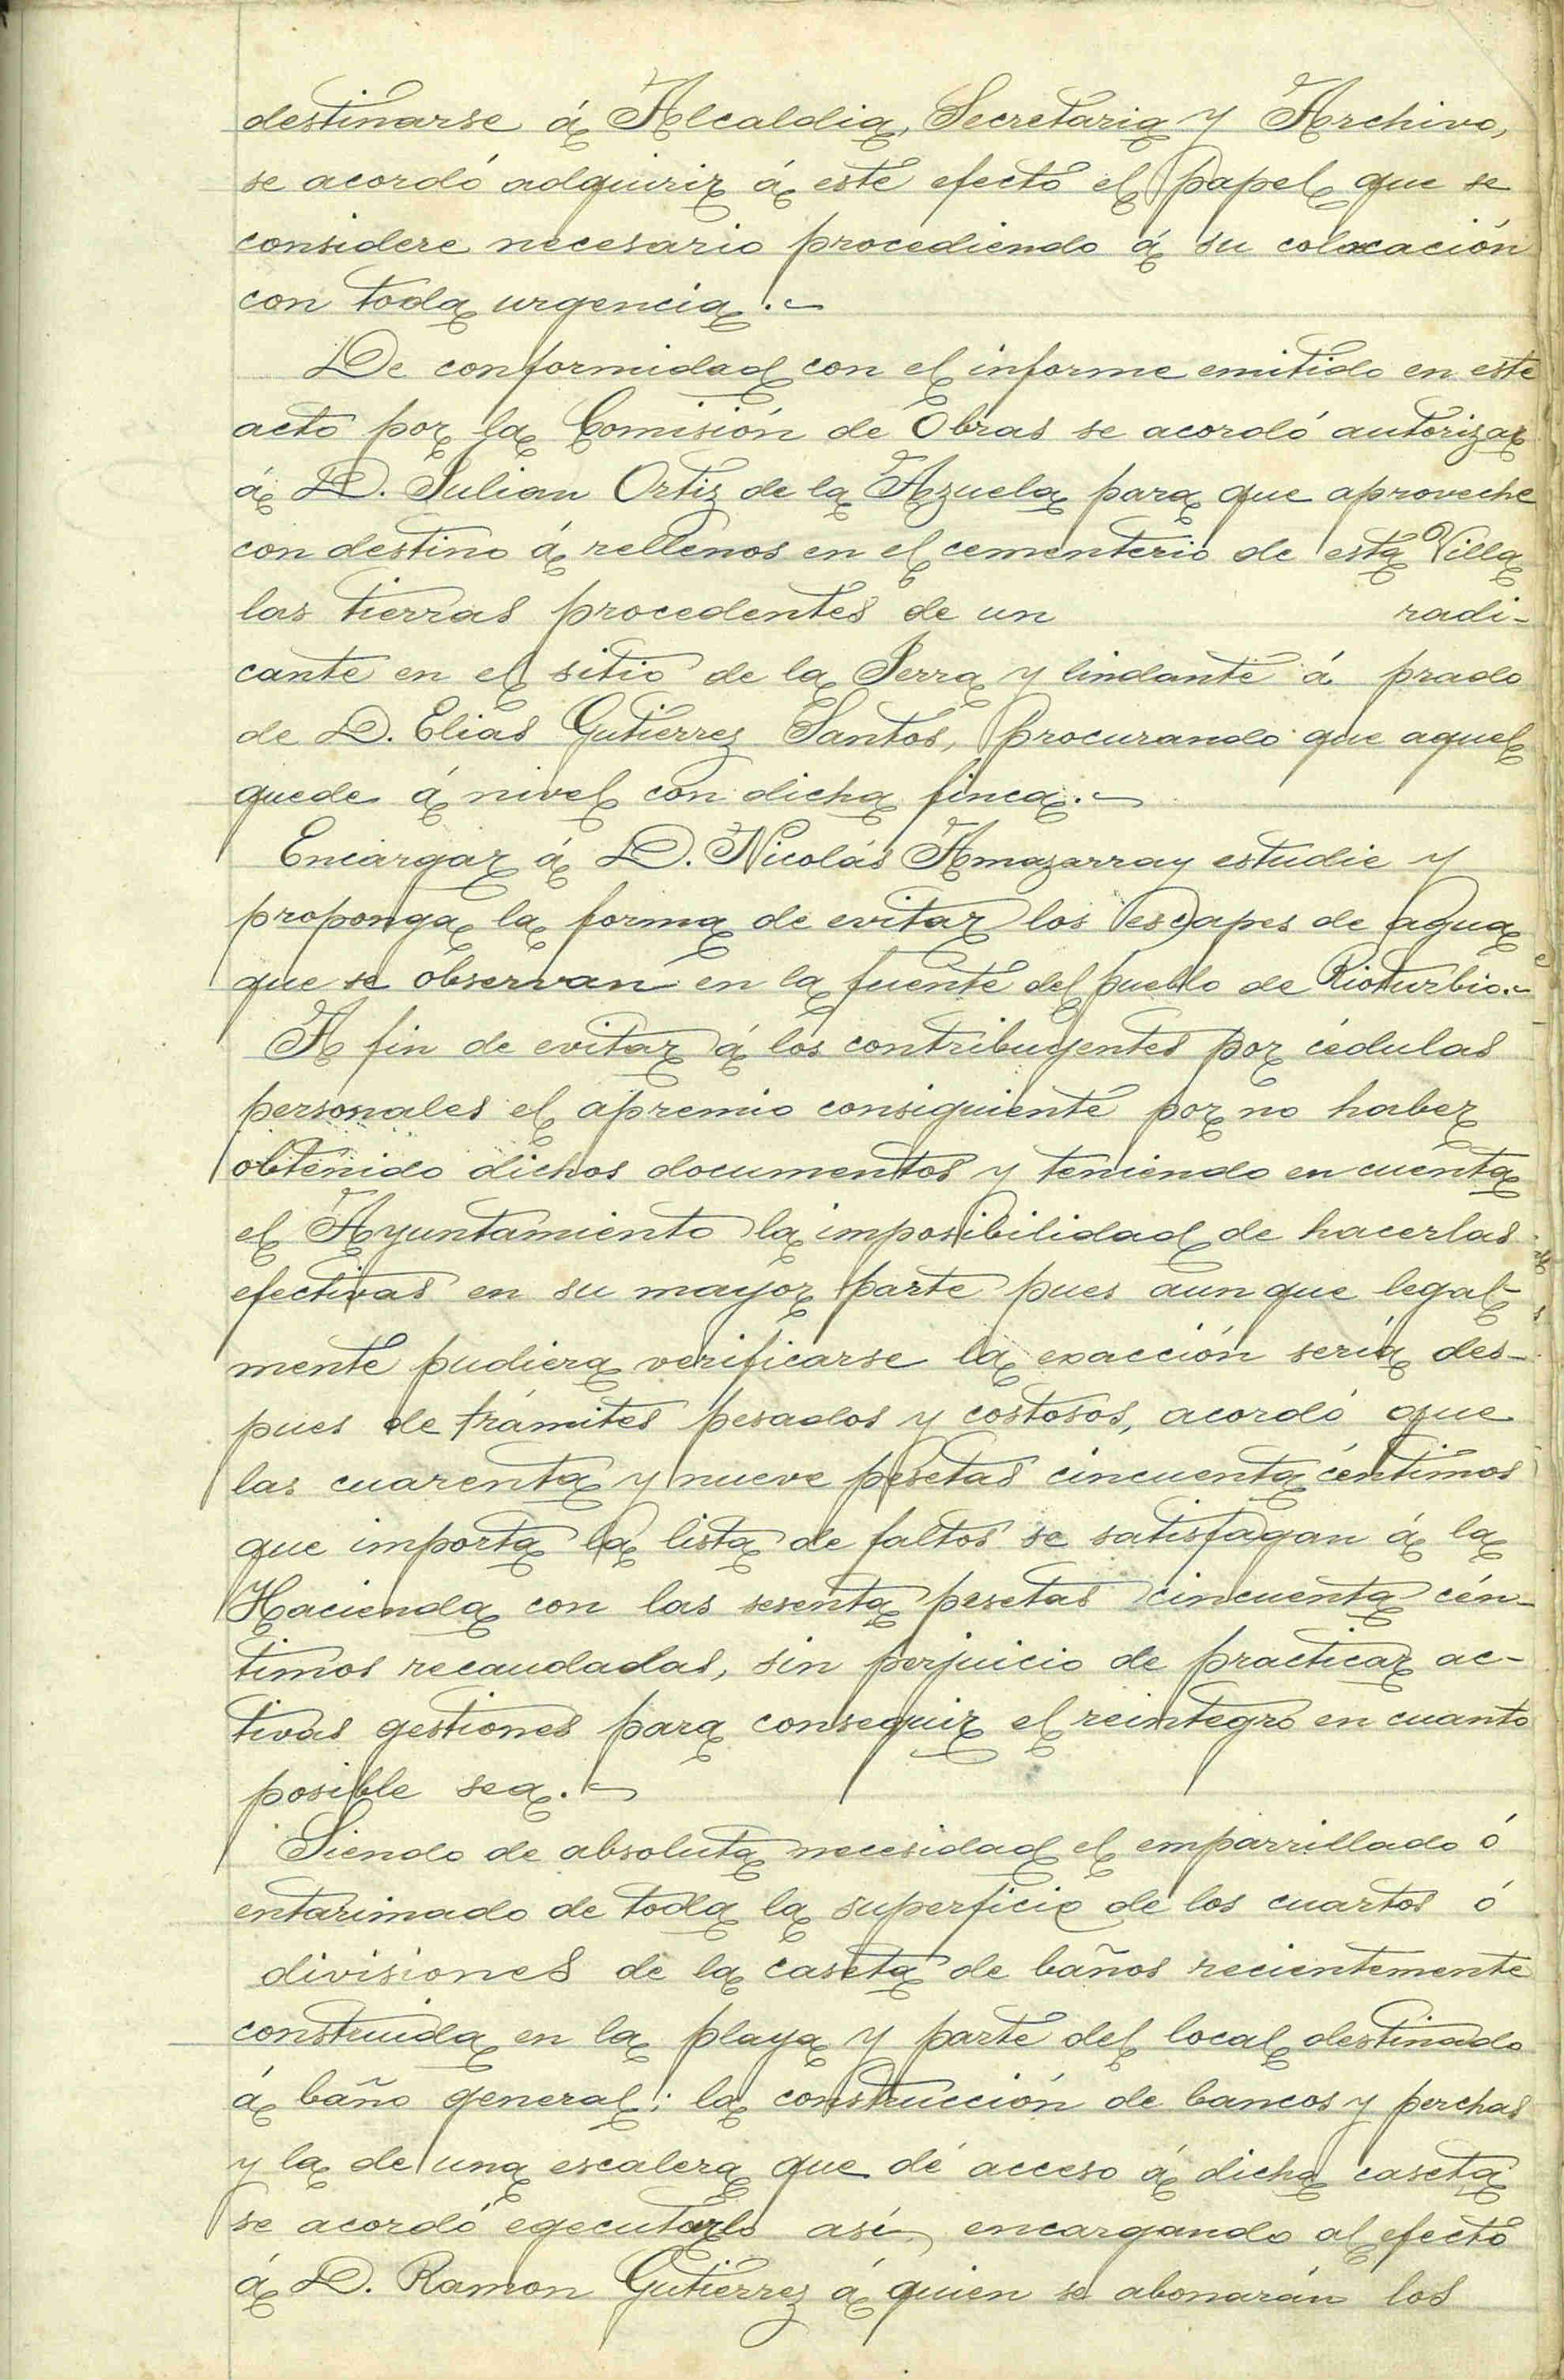 destinarse á Alcaldia, Secretaria y Archivo,
se acordó adquirir á este efecto el papel que se
considere necesario procediendo á su colocación
con toda urgencia.
De conformidad con el informe emitido en este
acto por la Comisión de Obras se acordó autorizar
á D. Julian Ortiz de la Azuela para que aproveche
con destino á rellenos en el cementerio de esta Villa
las tierras procedentes de un radi-
cante en el sitio de la Serra y lindante á prado
de D. Elias Gutierrez Santos, procurando que aquel
quede á nivel con dicha finca.
Encargar á D. Nicolás Amazarray estudie y
proponga la forma de evitar los escapes de agua
que se observan en la fuente del pueblo de Rioturbio.
A fin de evitar á los contribuyentes por cédulas
personales el apremio consiguiente por no haber
obtenido dichos documentos y teniendo en cuenta
el Ayuntamiento la imposibilidad de hacerlas
efectivas en su mayor parte pues aun que legal-
mente pudiera verificarse la exacción sería des-
pues de trámites pesados y costosos, acordó que
las cuarenta y nueve pesetas cincuenta céntimos
que importa la lista de faltos se satisfagan á la
Hacienda con las sesenta pesetas cincuenta cén-
timos recaudadas, sin perjuicio de practicar ac-
tivas gestiones para conseguir el reintegro en cuanto
posible sea.
Siendo de absoluta necesidad el emparrillado ó
entarimado de toda la superficie de los cuartos ó
divisiones de la caseta de baños recientemente
construida en la playa y parte del local destinado
á baño general; la construcción de bancos y perchas
y la de una escalera que dé acceso á dicha caseta
se acordó egecutarlo así, encargando al efecto
á D. Ramon Gutierrez á quien se abonarán los